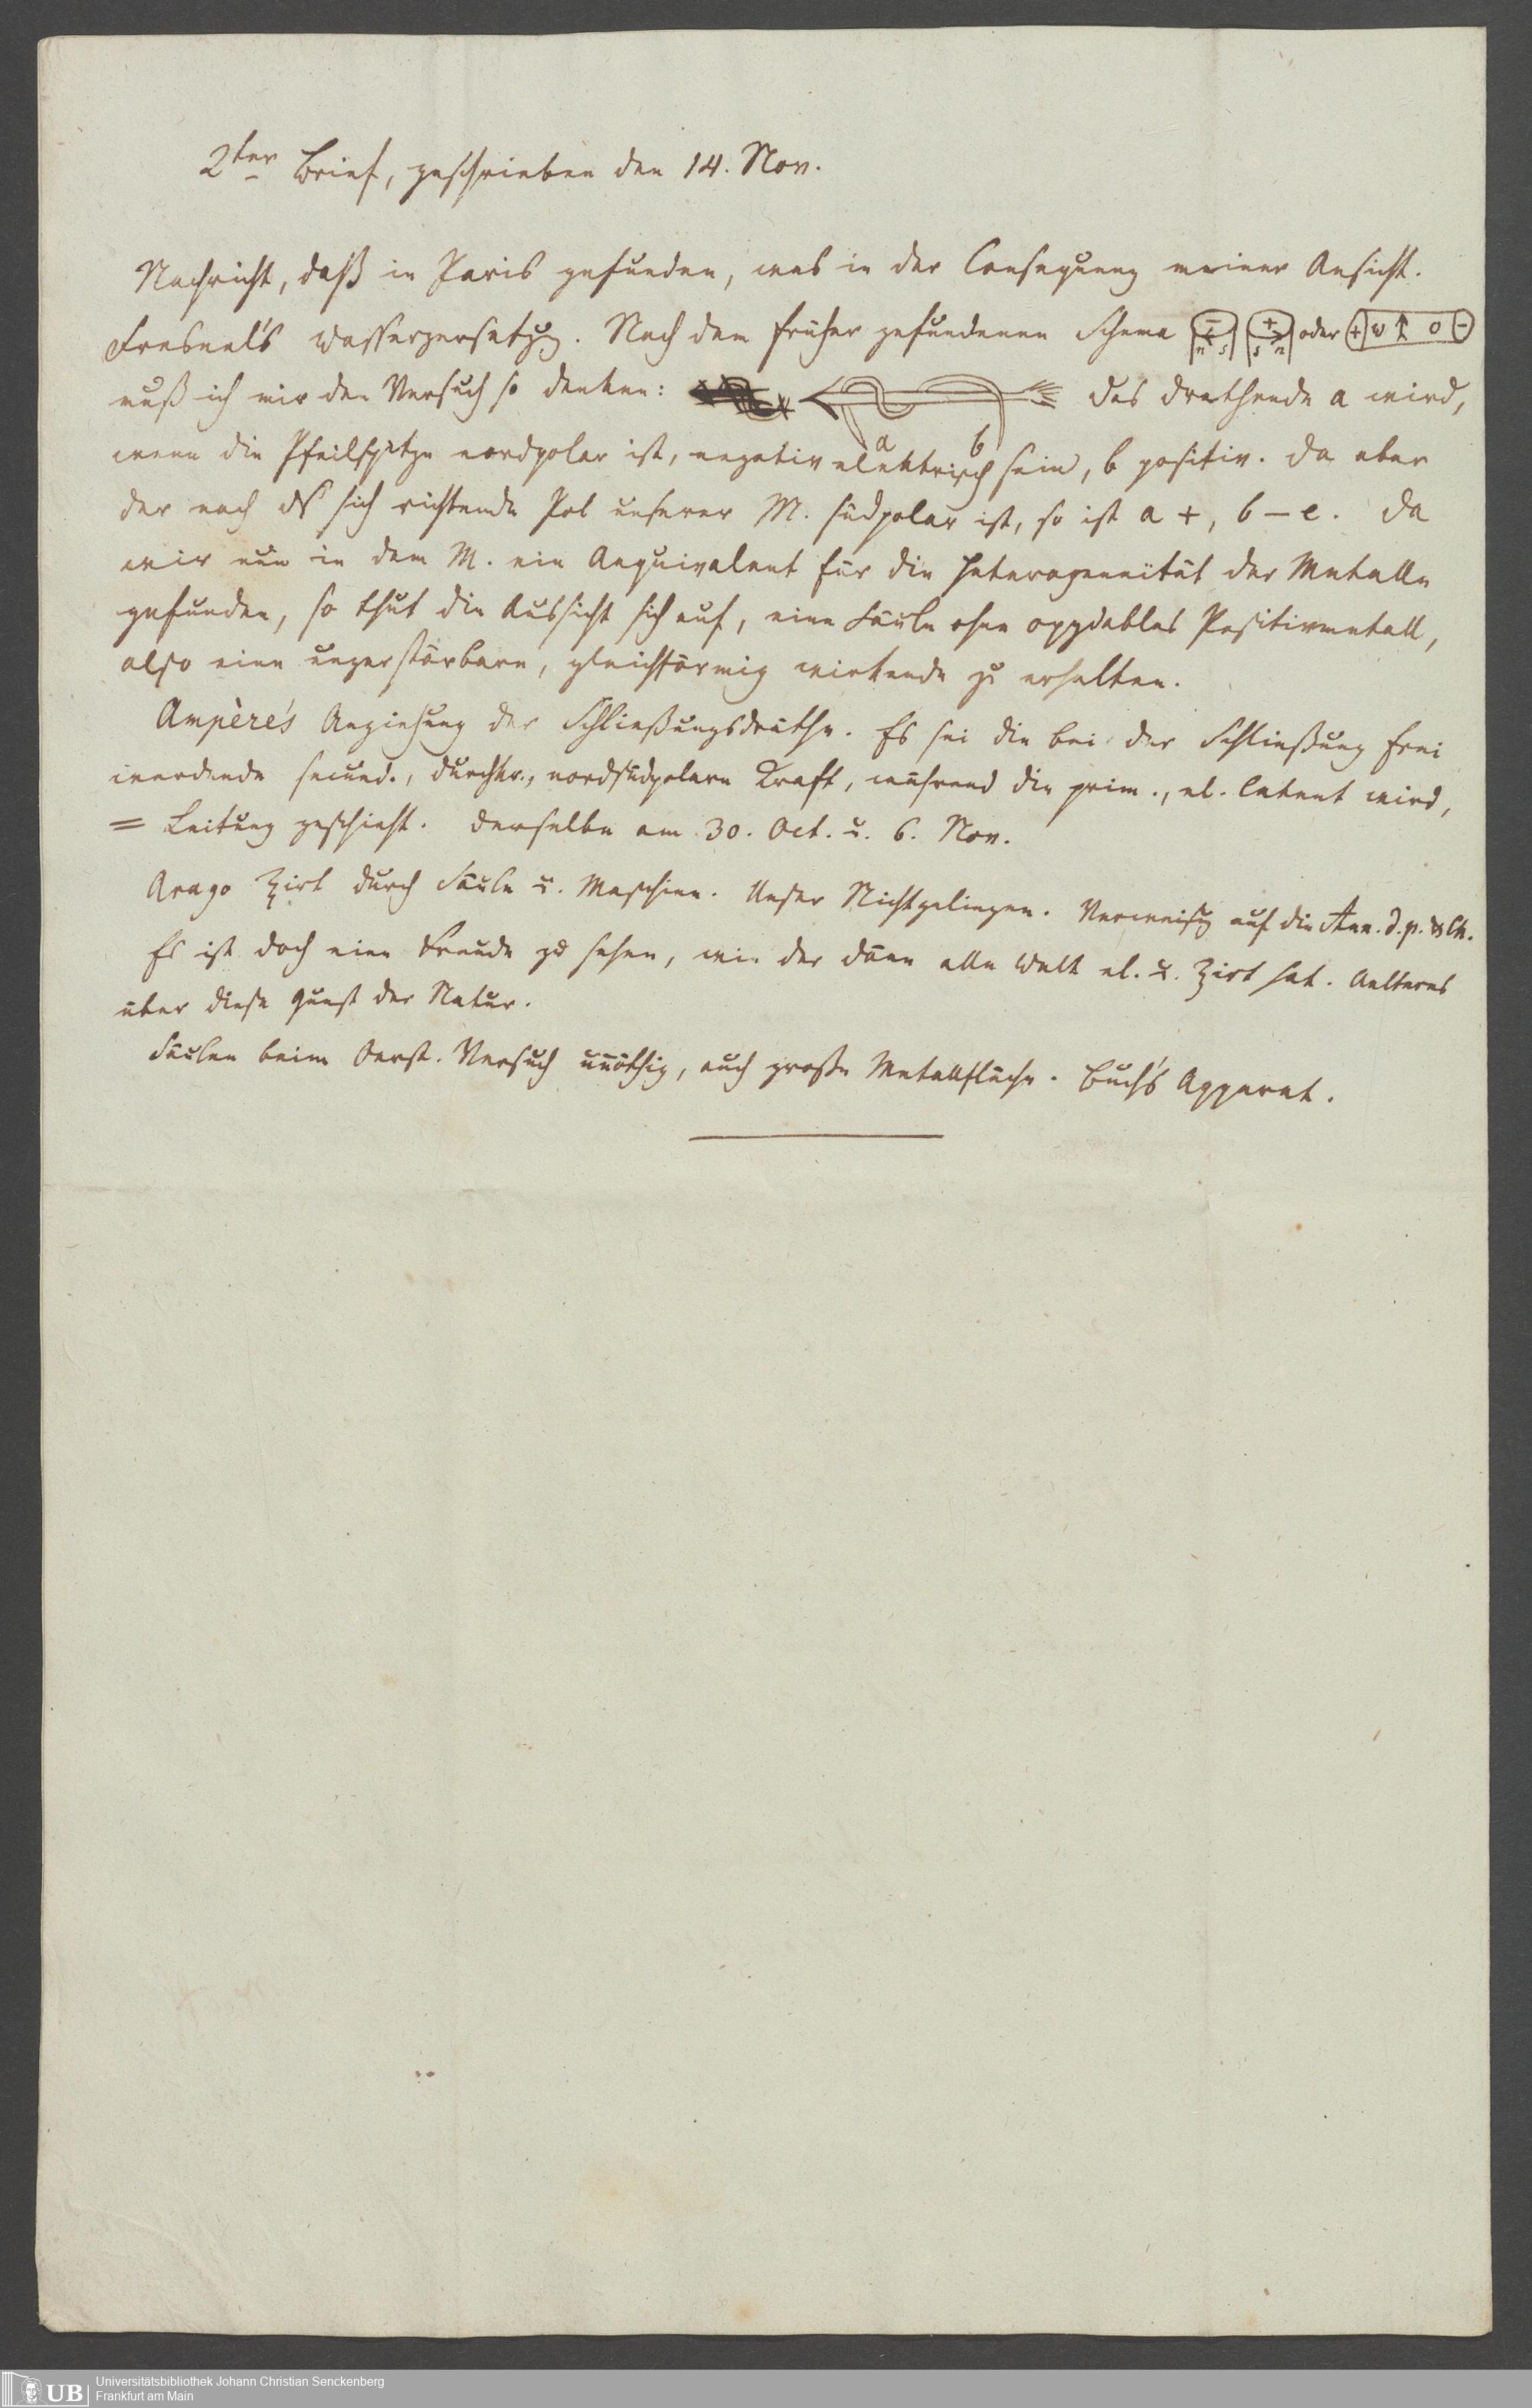 2ter Brief, geschrieben den 14. Nov.
Nachricht, daß in Paris gefunden, was in der Consequenz meiner Ansicht.
Fresnel's Wasserzersetzg. Nach dem früher gefundenen Schema - n s + s n oder + w o -
muß ich mir den Versuch so denken: a b das Drathende a wird,
wenn die Pfeilspitze nordpolar ist, negativ elektrisch sein, b positiv. Da aber
der nach N sich richtende Pol unserer M. südpolar ist, so ist a +, b – e. Da
wir nun in dem M. ein Aequivalent für die Heterogeneität der Metalle
gefunden, so thut die Aussicht sich auf, eine Säule ohne oxydables Positivmetall,
also eine unzerstörbare, gleichförmig wirkende zu erhalten.
Ampère's Anziehung der Schließungsdräthe. Es sei die bei der Schließung frei
werdende secund., durchkr., nordsüdpolare Kraft, während die prim., el. latent wird,
= Leitung geschieht. Derselbe am 30. Oct. u. 6. Nov.
Arago durch Säule u. Maschine. Unser Nichtgelingen. Verweisg auf die Ann. d. p. & Ch.
Es ist doch eine Freude zu sehen, wie der Däne alle Welt el. u. hat. Aelteres
über diese Gunst der Natur.
Säulen beim Oerst. Versuch unnöthig, auch große Metallfläche. Buch's Apparat.
Universitätsbibliothek Johann Christian Senckenberg
UB Frankfurt am Main